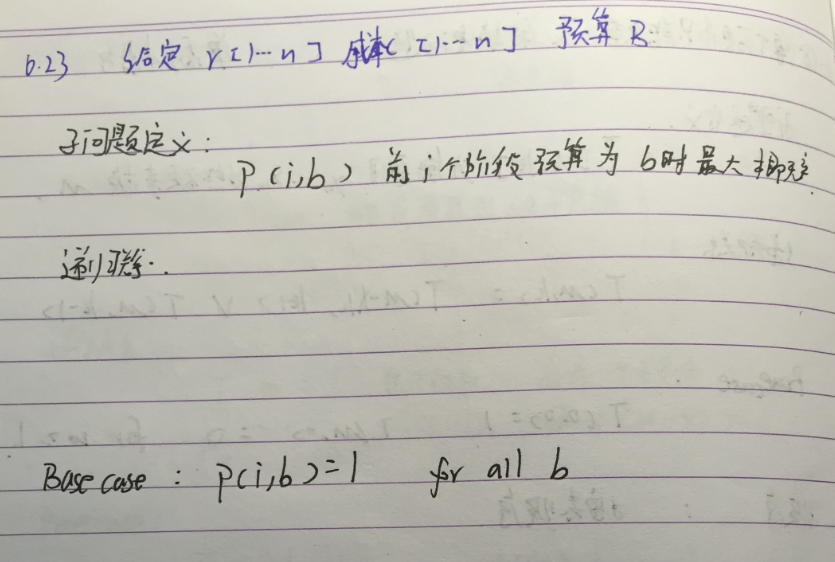 6.23 给定 r[1…n] 成本c[1…n] 预算B
子问题定义:
P(i,b) 前i个阶段预算为b时最大概率
递归关系:
Base case : P(i,b)=1 for all b